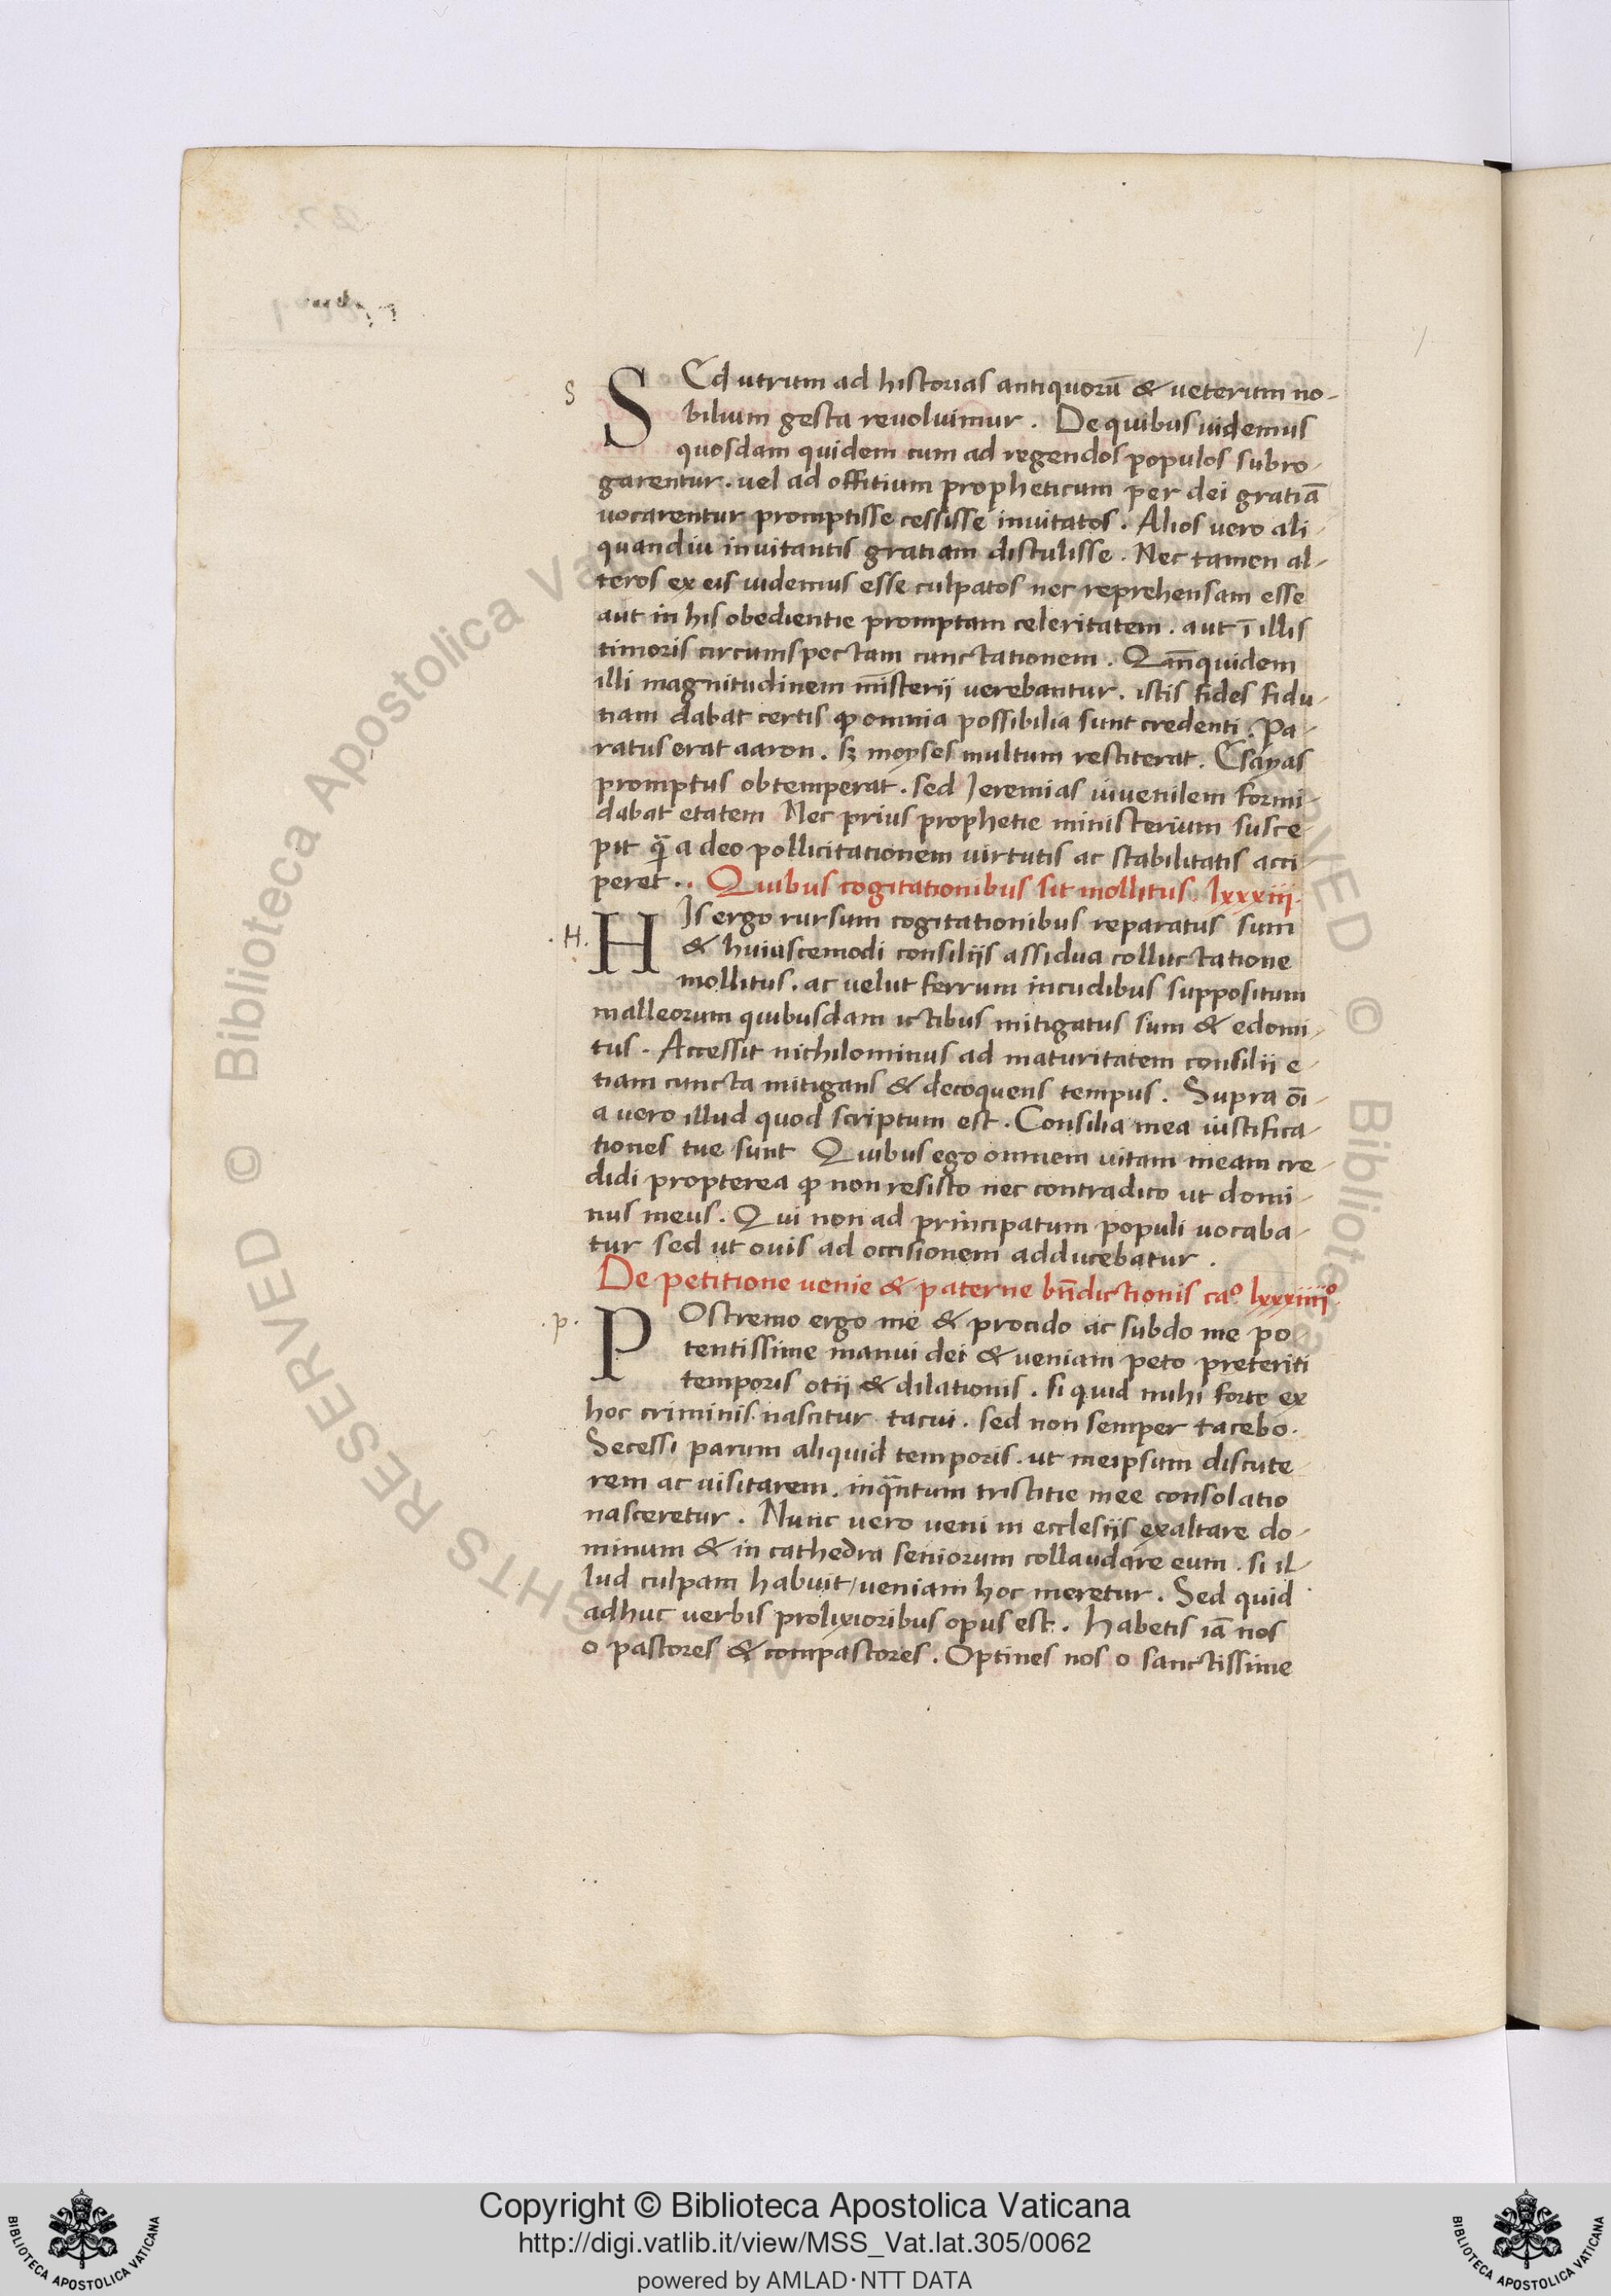 SEd utrum ad historias antiquorū & ueterum no-
bilium gesta reuoluimur. De quibus uidemus
quosdam quidem cum ad regendos populos subro-
garentur. uel ad offitium propheticum per dei gratiā
uocarentur promptisse cessisse inuitatos. Alios vero ali-
quandiu inuitantis gratiam distulisse. Nec tamen al-
teros ex eis uidemus esse culpatos nec reprehensam esse
aut in his obedientie promptam celeritatem. aut ī illis
timoris circumspectam cunctationem. Qm̄quidem
illi magnitudinem misterij uerebantur. istis fides fidu-
tiam dabat certis ꝙ omnia possibilia sunt credenti. Pa-
ratus erat aaron. sꝫ moyses multum restiterat. Esayas
promptus obtemperat. sed Jeremias iuuenilem formi-
dabat etatem Nec prius prophetie ministerium susce-
pit q̄ a deo pollicitationem uirtutis ac stabilitatis acci-
peret.. Quibus cogitationibus sit mollitus. lxxxiij.
.H. HIs ergo rursum cogitationibus reparatus sum
& huiuscemodi consilijs assidua colluctatione
mollitus. ac uelut ferrum incudibus suppositum
malleorum quibusdam ictibus mitigatus sum & edomi-
tus. Accessit nichilominus ad maturitatem consilii e-
tiam cuncta mitigans & decoquens tempus. Supra oī-
a vero illud quod scriptum est. Consilia mea iustifica-
tiones tue sunt Quibus ego omnem uitam meam cre-
didi propterea ꝙ non resisto nec contradico ut domi-
nus meus. Qui non ad principatum populi uocaba-
tur sed ut ouis ad occisionem adducebatur.
De petitione uenie & paterne bn̄dictionis caº lxxxiiijº.
.p. POstremo ergo me & procido ac subdo me po
tentissime manui dei & ueniam peto preteriti
temporis otij & dilationis. si quid mihi forte ex
hoc criminis nascitur tacui. sed non semper tacebo.
Secessi parum aliquid temporis. ut meipsum discute-
rem ac uisitarem. inq̄ntum tristitie mee consolatio
nasceretur. Nunc vero ueni in ecclesijs exaltare do-
minum & in cathedra seniorum collaudare eum. si il-
lud culpam habuit/ueniam hoc meretur. Sed quid
adhuc uerbis prolixioribus opus est. Habetis iā nos
o pastores & compastores. Optines nos o sanctissime
Copyright © Biblioteca Apostolica Vaticana
http://digi.vatlib.it/view/MSS_Vat.lat.305/0062
powered by AMLAD·NTT DATA